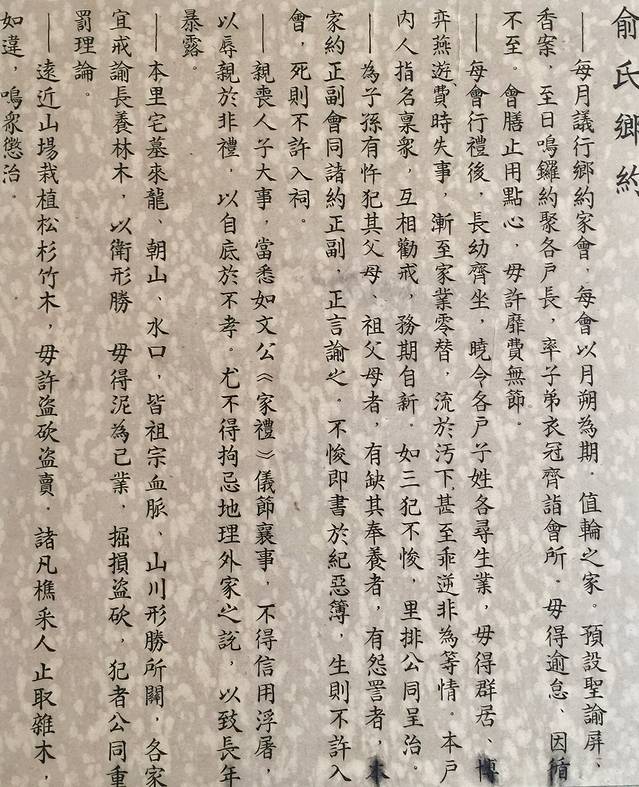 俞氏鄉約
——每月議行鄉約家會,每會以月朔為期。值輪之家。預設聖諭屏、
香案,至日鳴鑼約聚各戶長,率子弟衣冠齊詣會所。毋得逾怠、因循
不至。會膳止用點心,毋許靡費無節。
——每會行禮後,長幼齊坐,曉令各戶子姓各尋生業,毋得群居、博
弈燕遊、費時失事,漸至家業零替,流於汚下、甚至乖逆非為等情。本戶
內人指名稟眾,互相勸戒,務期自新。如三犯不悛,里排公同呈治。
——為子孫有忤犯其父母、祖父母者,有缺其奉養者,有怨詈者,本
家約正副會同諸約正副,正言諭之。不悛即書於紀惡簿,生則不許入
會,死則不許入祠。
——親喪人子大事,當悉如文公《家禮》儀節襄事,不得信用浮屠,
以辱親於非禮,以自底於不孝。尤不得拘忌地理外家之說,以致長年
暴露。
——本里宅墓來龍、朝山、水口,皆祖宗血脈、山川形勝所關,各家
宜戒諭長養林木,以衛形勝 毋得泥為己業,掘損盜砍,犯者公同重
罰理論。
——遠近山場栽植松杉竹木,毋許盜砍盜賣。諸凡樵采人止取雜木,
如違,鳴眾懲治。